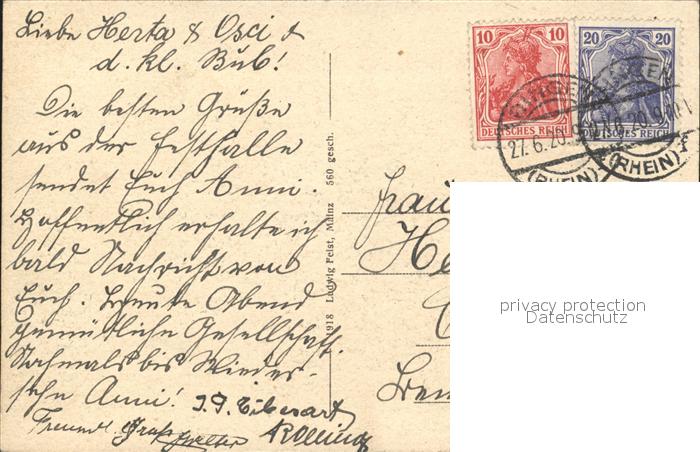 Liebe Herta & Osci &
d. kl. Bub!
Die besten Grüße
aus der Festhalle
sendet Euch Anni.
Hoffentlich erhalte ich
bald Nachricht von
Euch. Heute Abend
gemütliche Gesellschaft.
Nochmals bis Wieder-
sehn Anni!
Freundl. Gruß
10 10
DEUTSCHES REICH
20 20
DEUTSCHES REICH
27.6.20.
(RHEIN)
(RHEIN)
1918 Ludwig Feist, Mainz 560 gesch.
Frau
He
privacy protection
Datenschutz